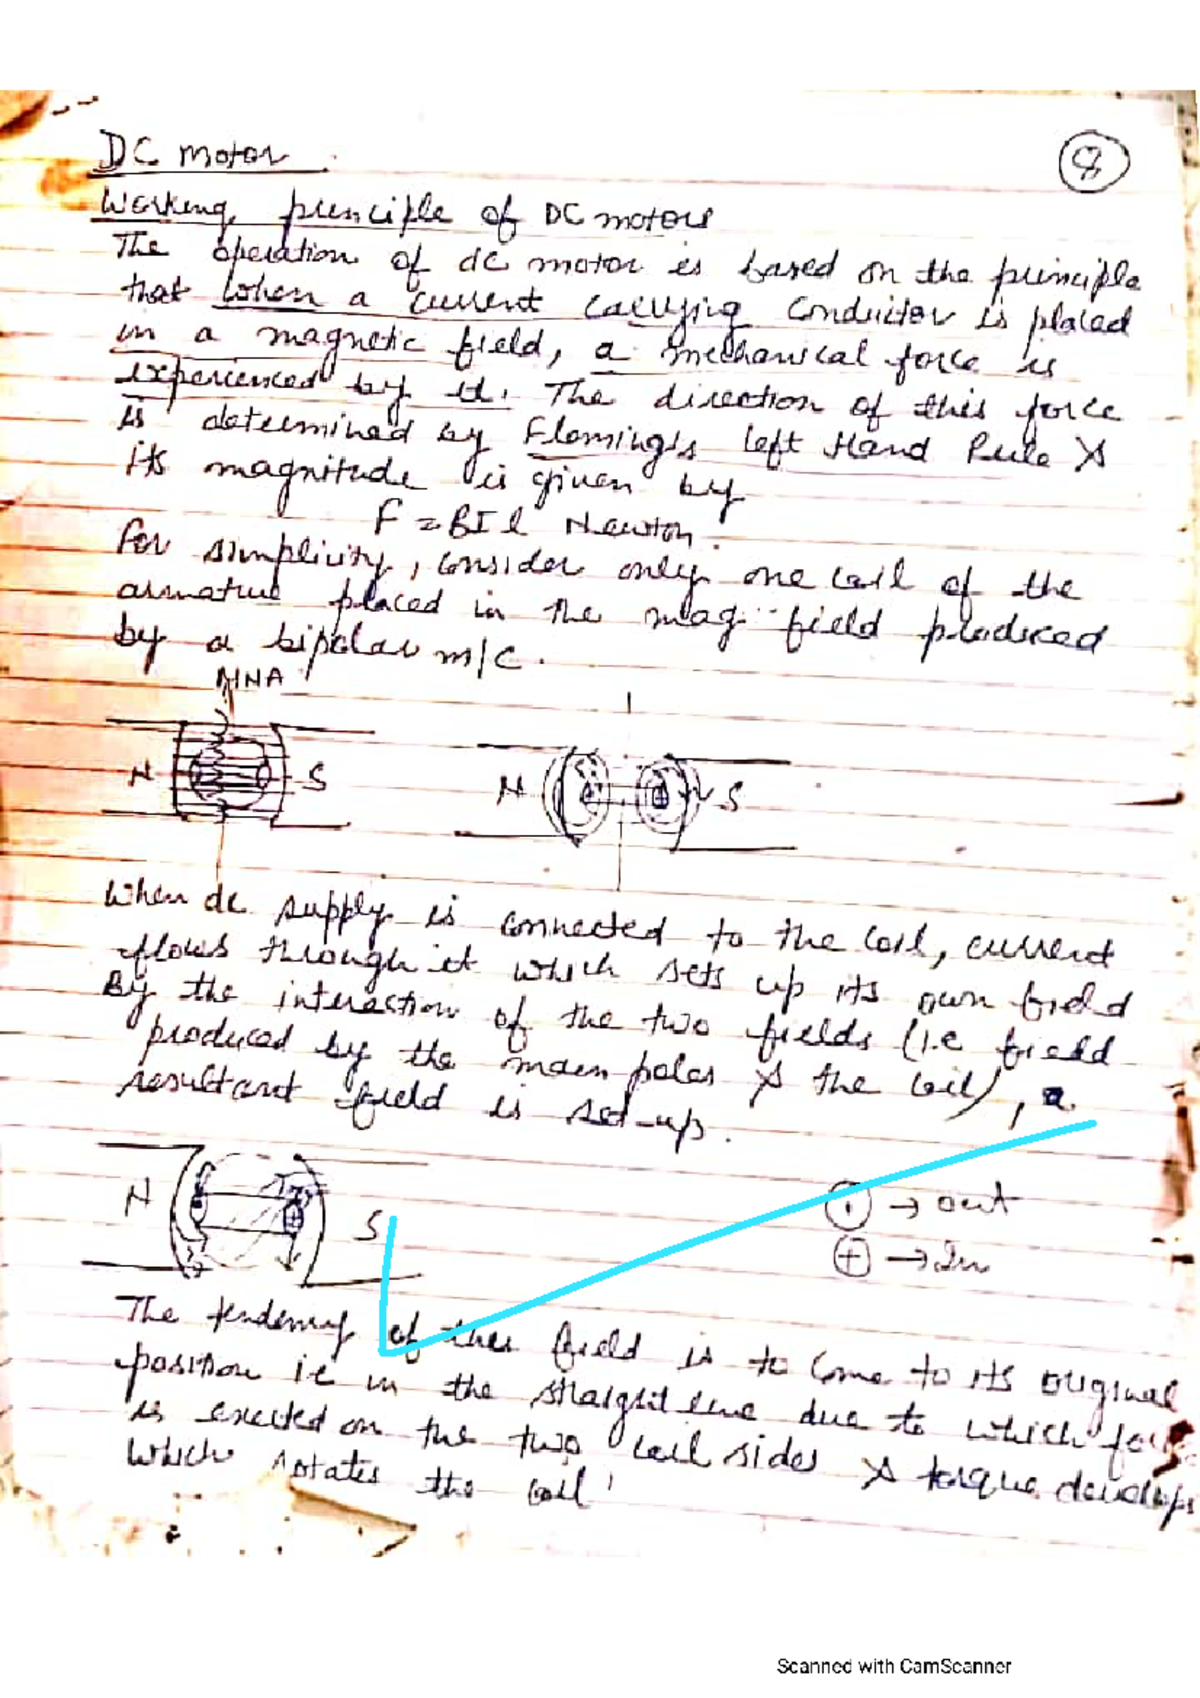 DC motor
Working principle of DC motors
The operation of dc motor is based on the principle
that when a current carrying conductor is placed
in a magnetic field, a mechanical force is
experienced by it. The direction of this force
is determined by Fleming's left Hand Rule &
its magnitude is given by
F = BIl Newton.
For simplicity, consider only one coil of the
armature placed in the mag. field produced
by a bipolar m/c.
MNA
N S
N S
When dc supply is connected to the coil, current
flows through it which sets up its own field
By the interaction of the two fields (i.e field
produced by the main poles & the coil), a
resultant field is set-up.
N S
→ out
+ → In
The tendency of this field is to come to its original
position i.e in the straight line due to which force
is exerted on the two coil sides & torque develops
which rotates the coil
Scanned with CamScanner